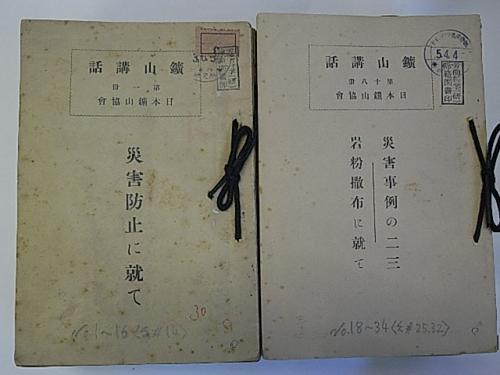 鑛山講話
第一册
日本鑛山協會
災害防止に就て
No.1~16
30
鑛山講話
第十八册
日本鑛山協會
5.4.4
災害事例の二三
岩粉撒布に就て
No.18~34